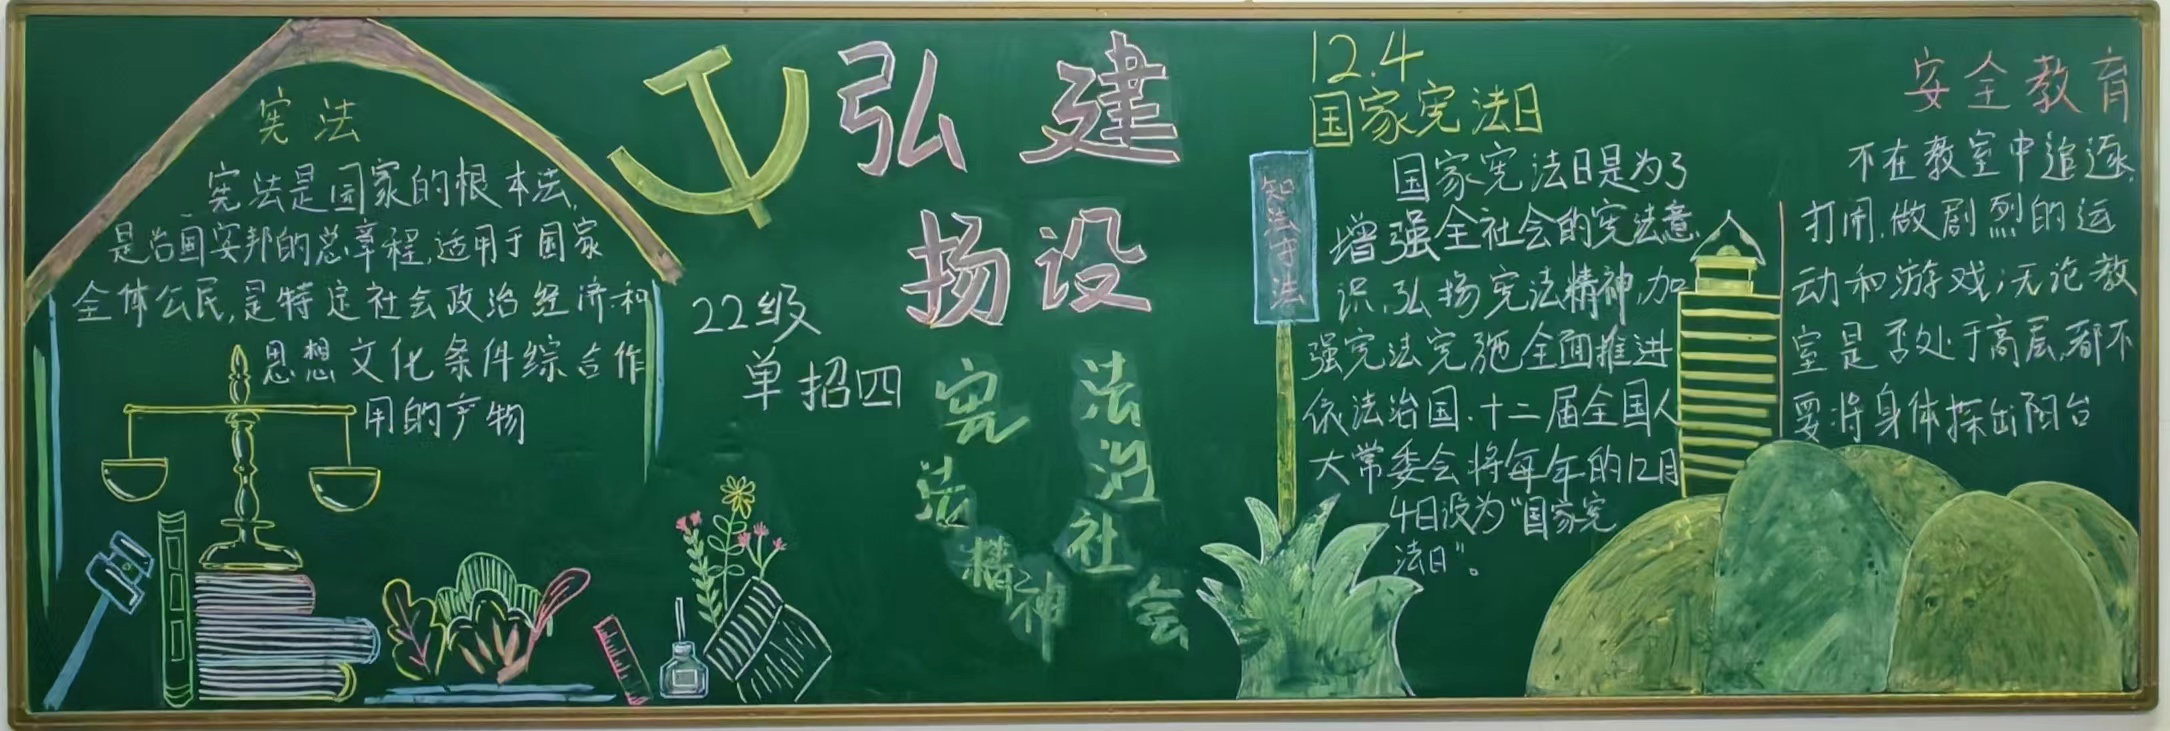 宪法
宪法是国家的根本法,
是治国安邦的总章程,适用于国家
全体公民,是特定社会政治经济和
思想文化条件综合作
用的产物
22级
单招四
弘扬
宪法精神
建设
法治社会
知法守法
12.4
国家宪法日
国家宪法日是为了
增强全社会的宪法意
识,弘扬宪法精神,加
强宪法实施,全面推进
依法治国.十二届全国人
大常委会将每年的12月
4日设为“国家宪
法日”。
安全教育
不在教室中追逐,
打闹,做剧烈的运
动和游戏;无论教
室是否处于高层,都不
要将身体探出阳台